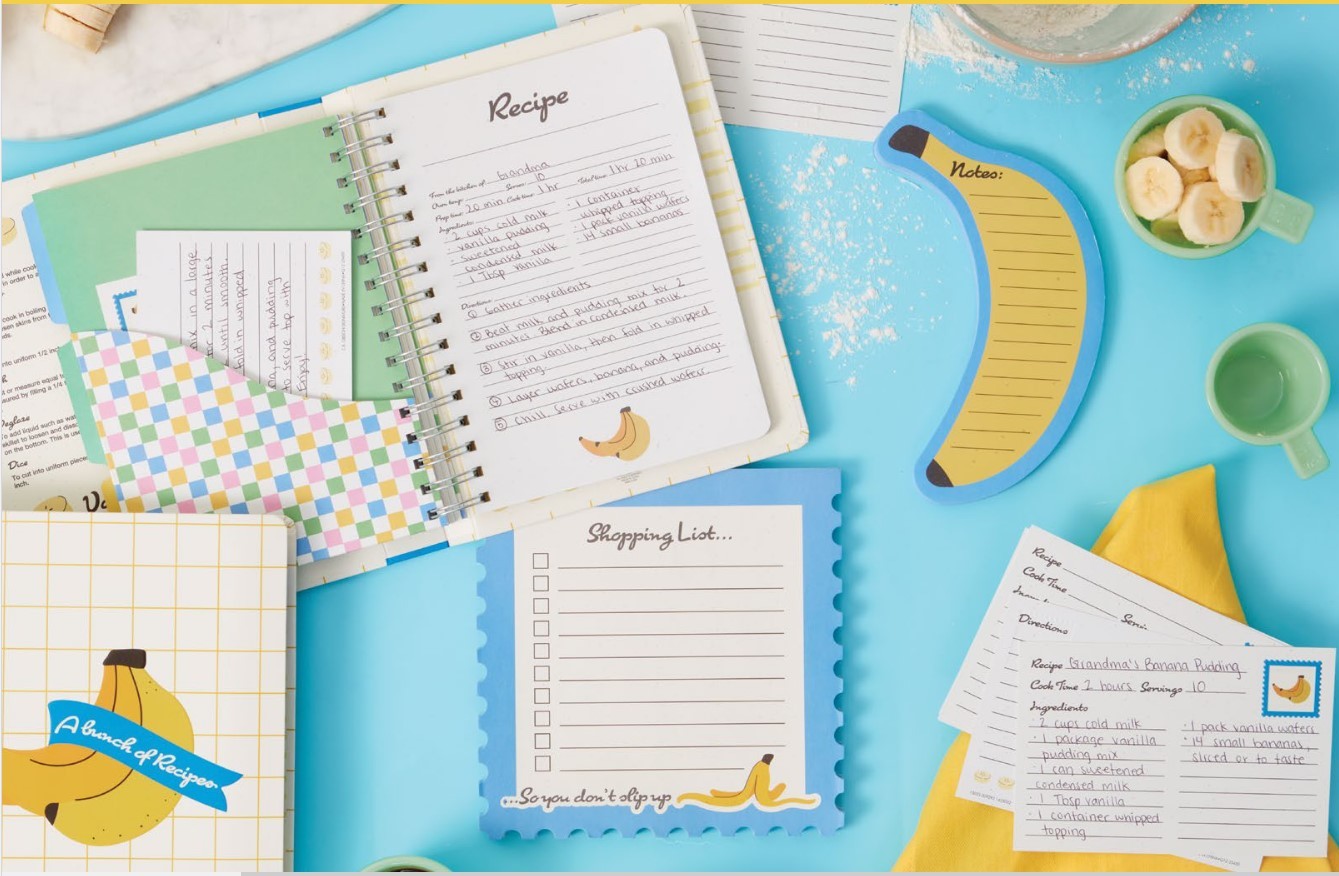 Recipe
From the kitchen of: Grandma
Serves: 10
Oven temp: 1 hr
Total time: 1 hr 20 min
Prep time: 20 min Cook time:
Ingredients:
· 2 cups cold milk
· vanilla pudding
· sweetened
condensed milk
· 1 Tbsp vanilla
· 1 container
whipped topping
· 1 pack vanilla wafers
· 14 small bananas
Directions:
① Gather ingredients
② Beat milk and pudding mix for 2
minutes. Blend in condensed milk.
③ Stir in vanilla, then fold in whipped
topping.
④ Layer wafers, banana, and pudding.
⑤ Chill. Serve with crushed wafer.
ix in a large
r 2 minutes
until smooth.
fold in whipped
na, and pudding
to serve top with
Enjoy!
d while cook
in order to a
cook in boiling
skins from
into uniform 1/2 inc
or measure equal to
by filling a 1/4
Deglaze
To add liquid such as
skillet to loosen and
on the bottom. This is use
Dice
To cut into uniform pieces
inch.
Notes:
A bunch of Recipes
Shopping List...
...So you don't slip up
Recipe
Cook Time
Directions
Recipe Grandma's Banana Pudding
Cook Time 2 hours Servings 10
Ingredients
· 2 cups cold milk
· 1 package vanilla
pudding mix
· 1 can sweetened
condensed milk
· 1 Tbsp vanilla
· 1 container whipped
topping
· 1 pack vanilla wafers
· 14 small bananas,
sliced or to taste